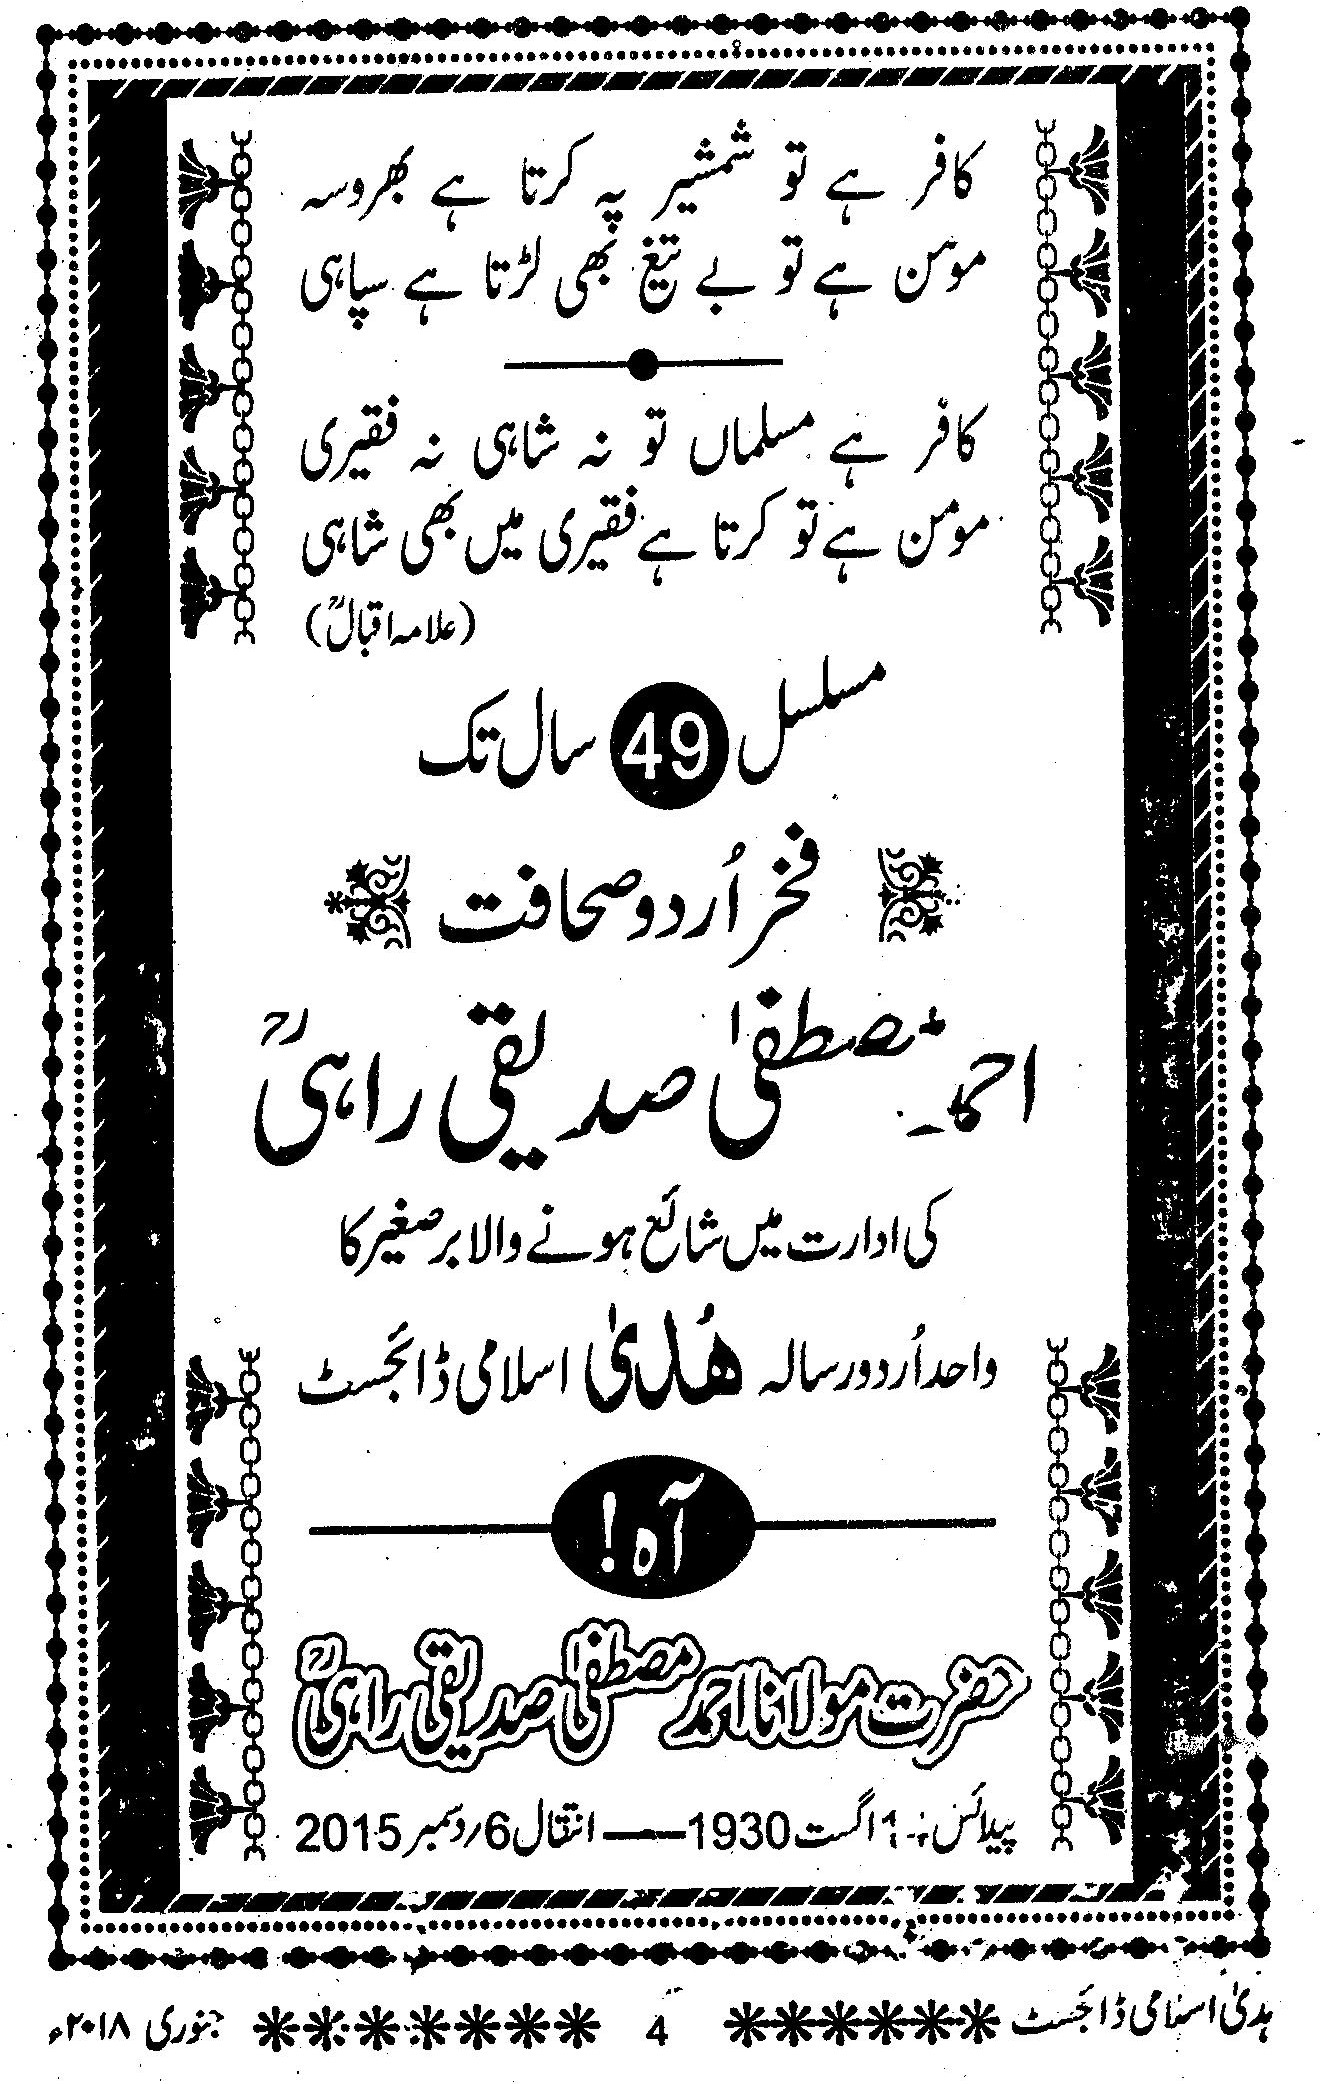 کافر ہے تو شمشیر پہ کرتا ہے بھروسہ
مومن ہے تو بے تیغ بھی لڑتا ہے سپاہی
کافر ہے مسلماں تو نہ شاہی نہ فقیری
مومن ہے تو کرتا ہے فقیری میں بھی شاہی
(علامہ اقبالؒ)
مسلسل 49 سال تک
فخر اُردو صحافت
احمد مصطفیٰ صدیقی راہیؒ
کی ادارت میں شائع ہونے والا برصغیر کا
واحد اُردو رسالہ ھُدیٰ اسلامی ڈائجسٹ
آہ!
حضرت مولانا احمد مصطفیٰ صدیقی راہیؒ
پیدائش: 1 اگست 1930 — انتقال 6؍دسمبر 2015
ہدیٰ اسلامی ڈائجسٹ 4 جنوری ۲۰۱۸ء